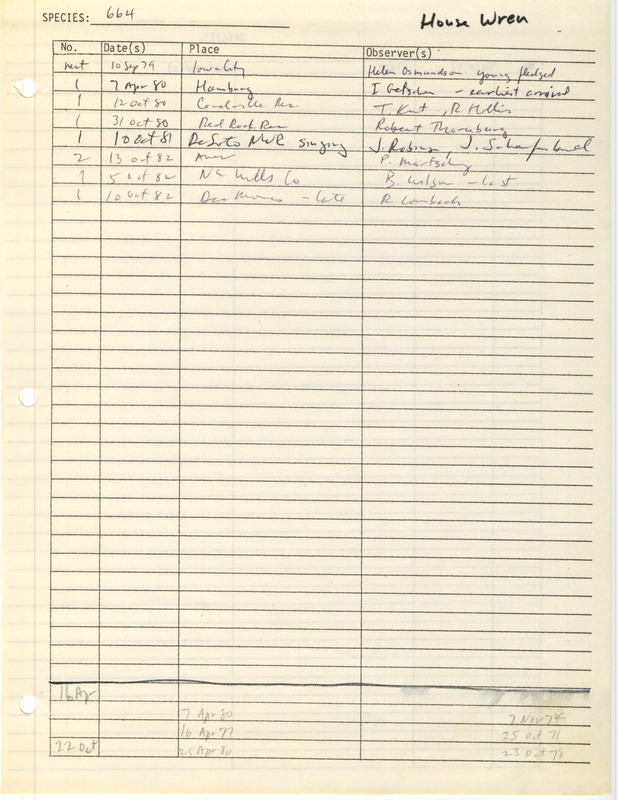 SPECIES: 664 House Wren
No. Date(s) Place Observer(s)
nest 10 Sep 79 Iowa City Helen Osmundson young fledged
1 7 Apr 80 Hamburg I Getscher - earliest arrival
1 12 Oct 80 Coralville Res T. Kent, R. Hollis
1 31 Oct 80 Red Rock Res Robert Thornburg
1 10 Oct 81 DeSoto NWR singing J. Robinson, J. Schaufenbuel
2 13 Oct 82 Ames P. Martsching
1 5 Oct 82 Mills Co B. Wilson - last
1 10 Oct 82 Des Moines - late R. Laubach
16 Apr
7 Apr 80 7 Nov 74
16 Apr 77 25 Oct 71
22 Oct 25 Apr 80 23 Oct 78